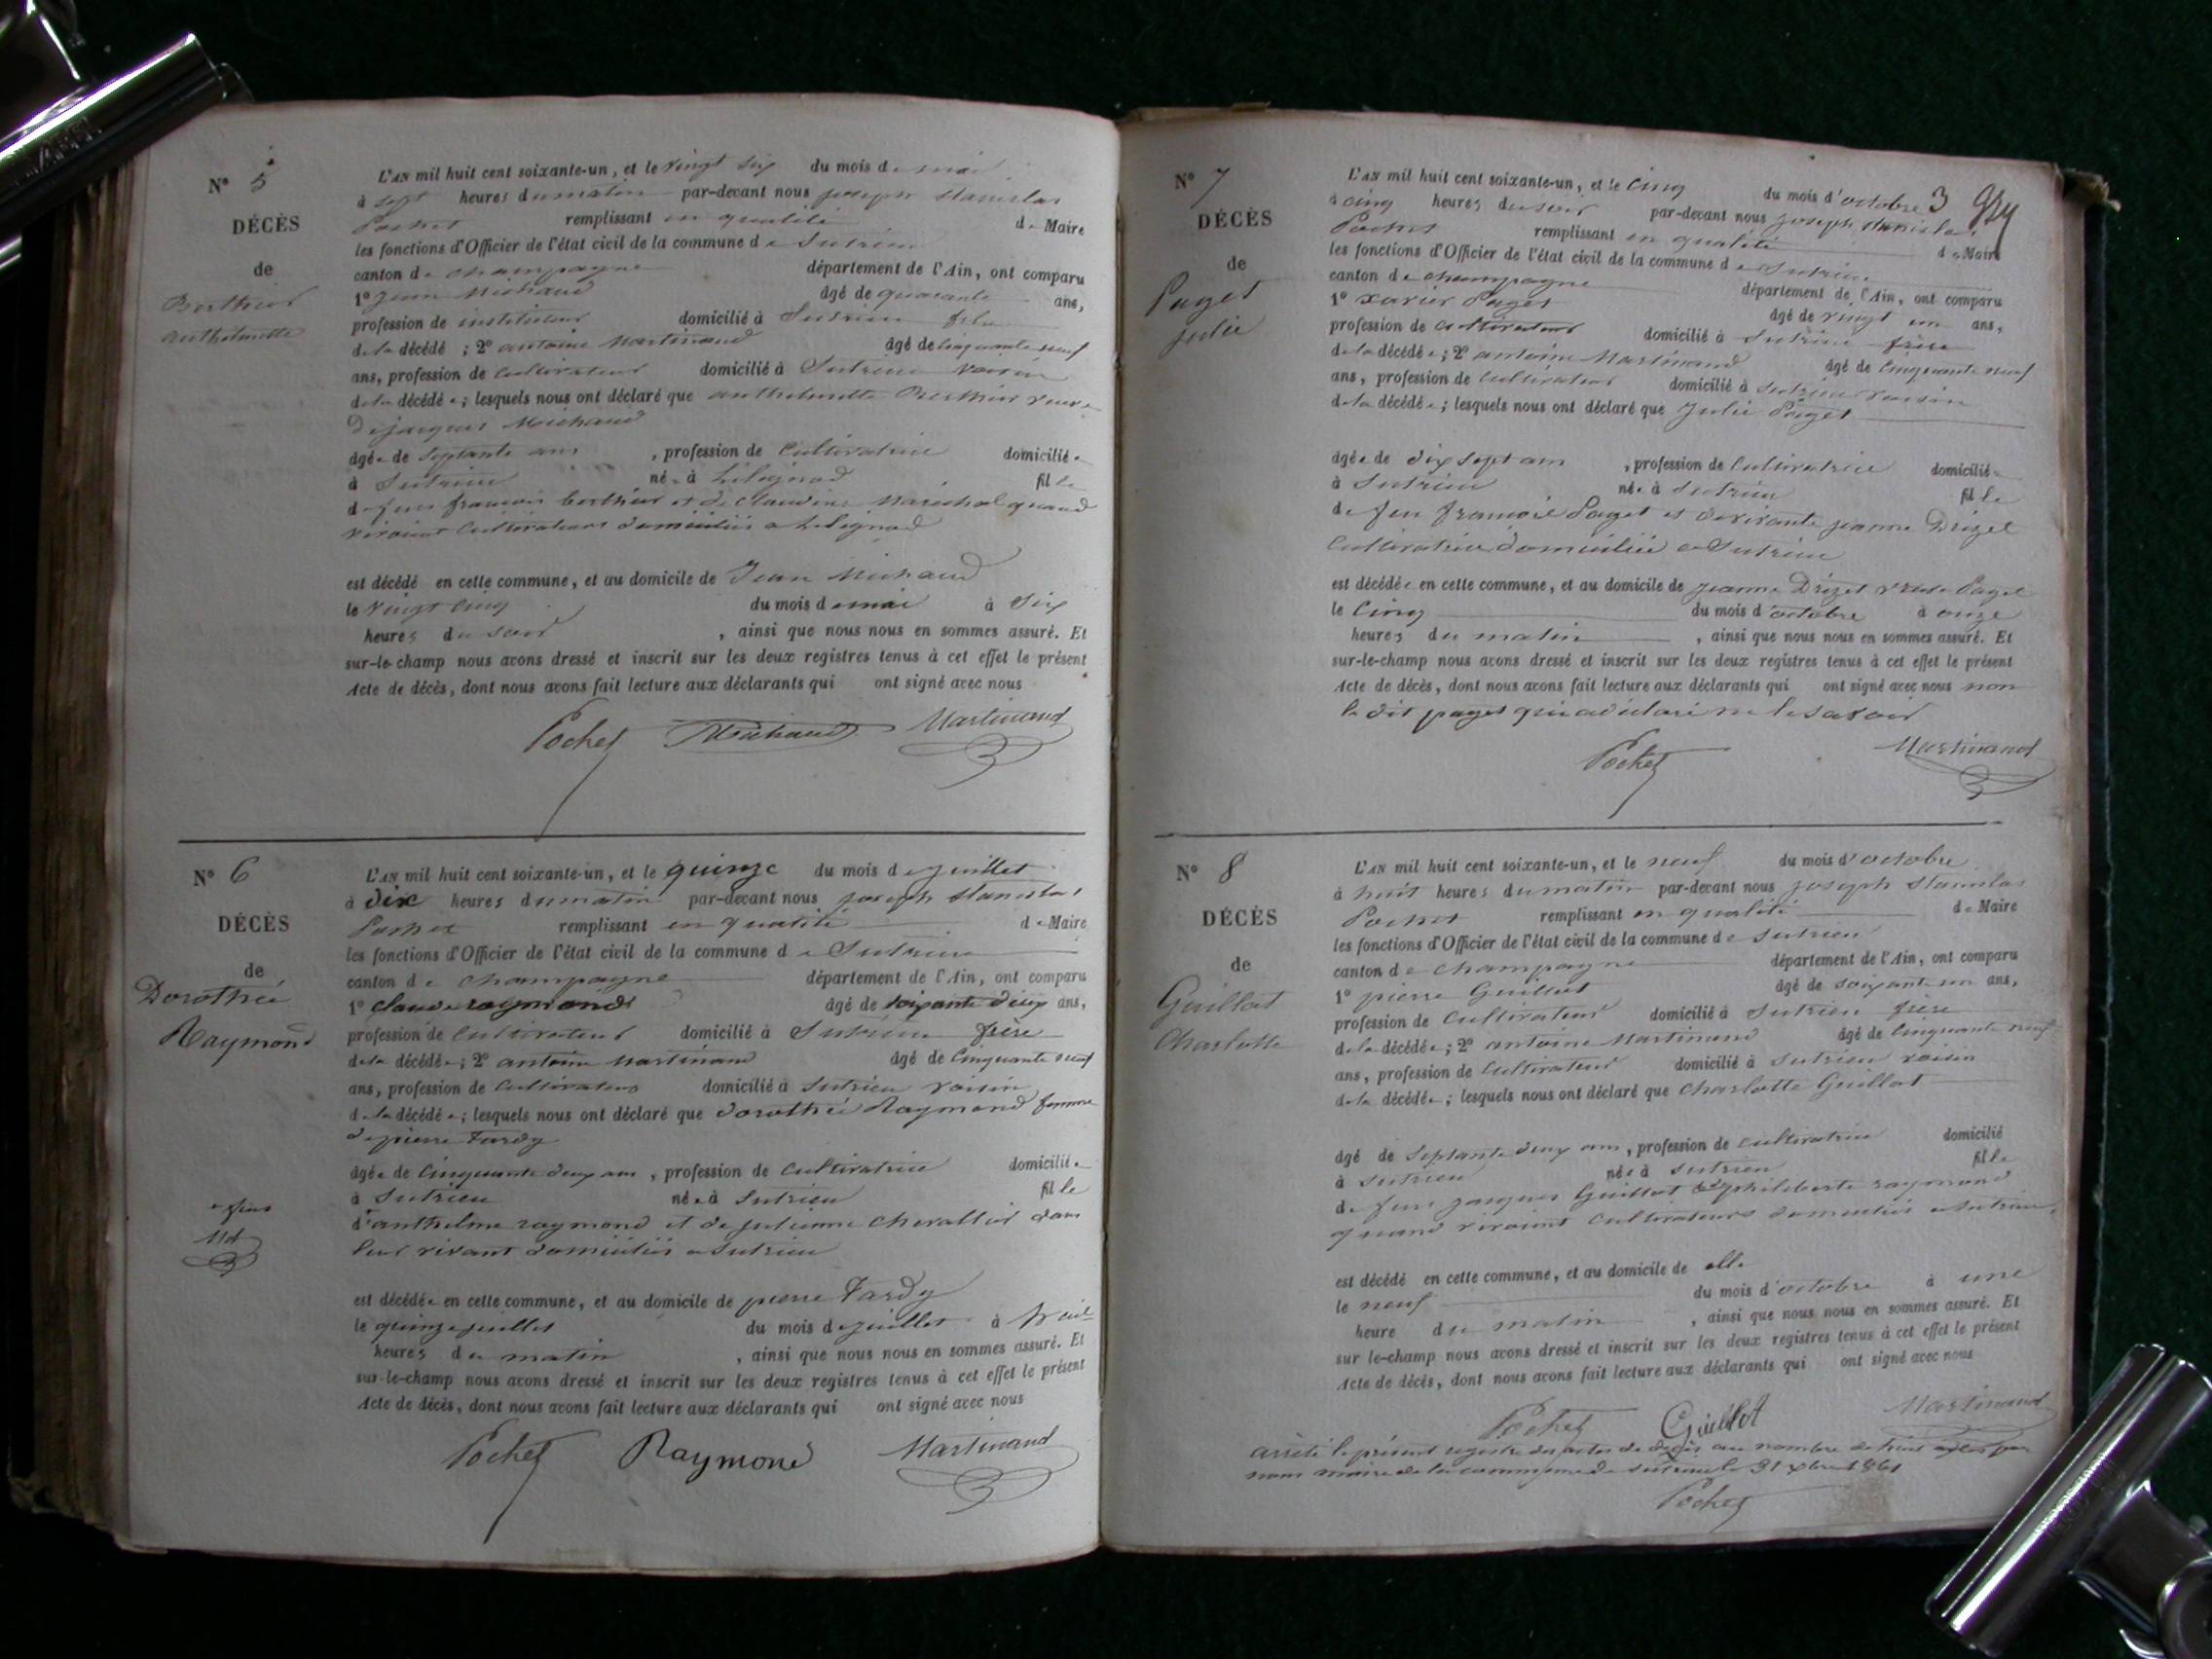 N° 5
DÉCÈS
de
Berthier
anthelmette
L'AN mil huit cent soixante-un, et le vingt six du mois de mai
à sept heures du matin par-devant nous joseph stanislas
Pochet remplissant en qualité de Maire
les fonctions d'Officier de l'état civil de la commune de Sutrieu
canton de champagne département de l'Ain, ont comparu
1° Jean Michaud âgé de quarante ans,
profession de instituteur domicilié à Sutrieu fils
de la décédé ; 2° antoine Martinand âgé de cinquante neuf
ans, profession de cultivateur domicilié à Sutrieu voisin
de la décédée ; lesquels nous ont déclaré que anthelmette Berthier veuve
De jacques Michaud
âgée de septante ans , profession de cultivatrice domiciliée
à Sutrieu née à Lilignod fille
de feus francois berthier et de claudine Maréchal quand
vivaient cultivateurs domiciliés a Lilignod
est décédé en cette commune, et au domicile de Jean Michaud
le vingt cinq du mois de mai à six
heures du soir , ainsi que nous nous en sommes assuré. Et
sur-le-champ nous avons dressé et inscrit sur les deux registres tenus à cet effet le présent
Acte de décès, dont nous avons fait lecture aux déclarants qui ont signé avec nous
Pochet Michaud Martinand
N° 6
DÉCÈS
de
Dorothée
Raymond
Md
L'AN mil huit cent soixante-un, et le quinze du mois de juillet
à dix heures du matin par-devant nous joseph stanislas
Pochet remplissant en qualité de Maire
les fonctions d'Officier de l'état civil de la commune de Sutrieu
canton de champagne département de l'Ain, ont comparu
1° claude raymond âgé de soixante deux ans,
profession de cultivateur domicilié à Sutrieu frère
de la décédée ; 2° antoine Martinand âgé de cinquante neuf
ans, profession de cultivateur domicilié à Sutrieu voisin
de la décédée ; lesquels nous ont déclaré que dorothée Raymond femme
de pierre Tardy
âgée de cinquante deux ans , profession de cultivatrice domiciliée
à Sutrieu née à Sutrieu fille
d'anthelme raymond et de julienne chevallier dans
leur vivant domiciliés a Sutrieu
est décédée en cette commune, et au domicile de pierre Tardy
le quinze juillet du mois de juillet à
heures du matin , ainsi que nous nous en sommes assuré. Et
sur-le-champ nous avons dressé et inscrit sur les deux registres tenus à cet effet le présent
Acte de décès, dont nous avons fait lecture aux déclarants qui ont signé avec nous
Pochet Raymond Martinand
3
N° 7
DÉCÈS
de
Paget
julie
L'AN mil huit cent soixante-un, et le cinq du mois d'octobre
à cinq heures du soir par-devant nous joseph stanislas
Pochet remplissant en qualité de Maire
les fonctions d'Officier de l'état civil de la commune de Sutrieu
canton de champagne département de l'Ain, ont comparu
1° xavier Paget âgé de vingt un ans,
profession de cultivateur domicilié à Sutrieu frère
de la décédée ; 2° antoine Martinand âgé de cinquante neuf
ans, profession de cultivateur domicilié à Sutrieu voisin
de la décédée ; lesquels nous ont déclaré que Julie Paget
âgée de dix sept ans , profession de cultivatrice domiciliée
à Sutrieu née à Sutrieu fille
de feu francois Paget et de vivante jeanne Drizet
cultivatrice domiciliée a Sutrieu
est décédée en cette commune, et au domicile de jeanne Drizet veuve Paget
le cinq du mois d'octobre à onze
heures du matin , ainsi que nous nous en sommes assuré. Et
sur-le-champ nous avons dressé et inscrit sur les deux registres tenus à cet effet le présent
Acte de décès, dont nous avons fait lecture aux déclarants qui ont signé avec nous non
le dit paget qui a déclaré ne le savoir
Pochet Martinand
N° 8
DÉCÈS
de
Guillot
Charlotte
L'AN mil huit cent soixante-un, et le neuf du mois d'octobre
à huit heures du matin par-devant nous joseph stanislas
Pochet remplissant en qualité de Maire
les fonctions d'Officier de l'état civil de la commune de Sutrieu
canton de champagne département de l'Ain, ont comparu
1° pierre Guillot âgé de soixante un ans,
profession de cultivateur domicilié à Sutrieu frère
de la décédée ; 2° antoine Martinand âgé de cinquante neuf
ans, profession de cultivateur domicilié à Sutrieu voisin
de la décédée ; lesquels nous ont déclaré que charlotte Guillot
âgé de septante deux ans , profession de cultivatrice domicilié
à Sutrieu née à Sutrieu fille
de feus jacques Guillot philiberte raymond
quand vivaient cultivateurs domiciliés a Sutrieu,
est décédé en cette commune, et au domicile de elle
le neuf du mois d'octobre à une
heure du matin , ainsi que nous nous en sommes assuré. Et
sur le-champ nous avons dressé et inscrit sur les deux registres tenus à cet effet le présent
Acte de décès, dont nous avons fait lecture aux déclarants qui ont signé avec nous
Pochet Guillot Martinand
arrêté le présent registre des actes de décès au nombre de huit actes par
nous maire de la commune de sutrieu le 31 xbre 1861
Pochet